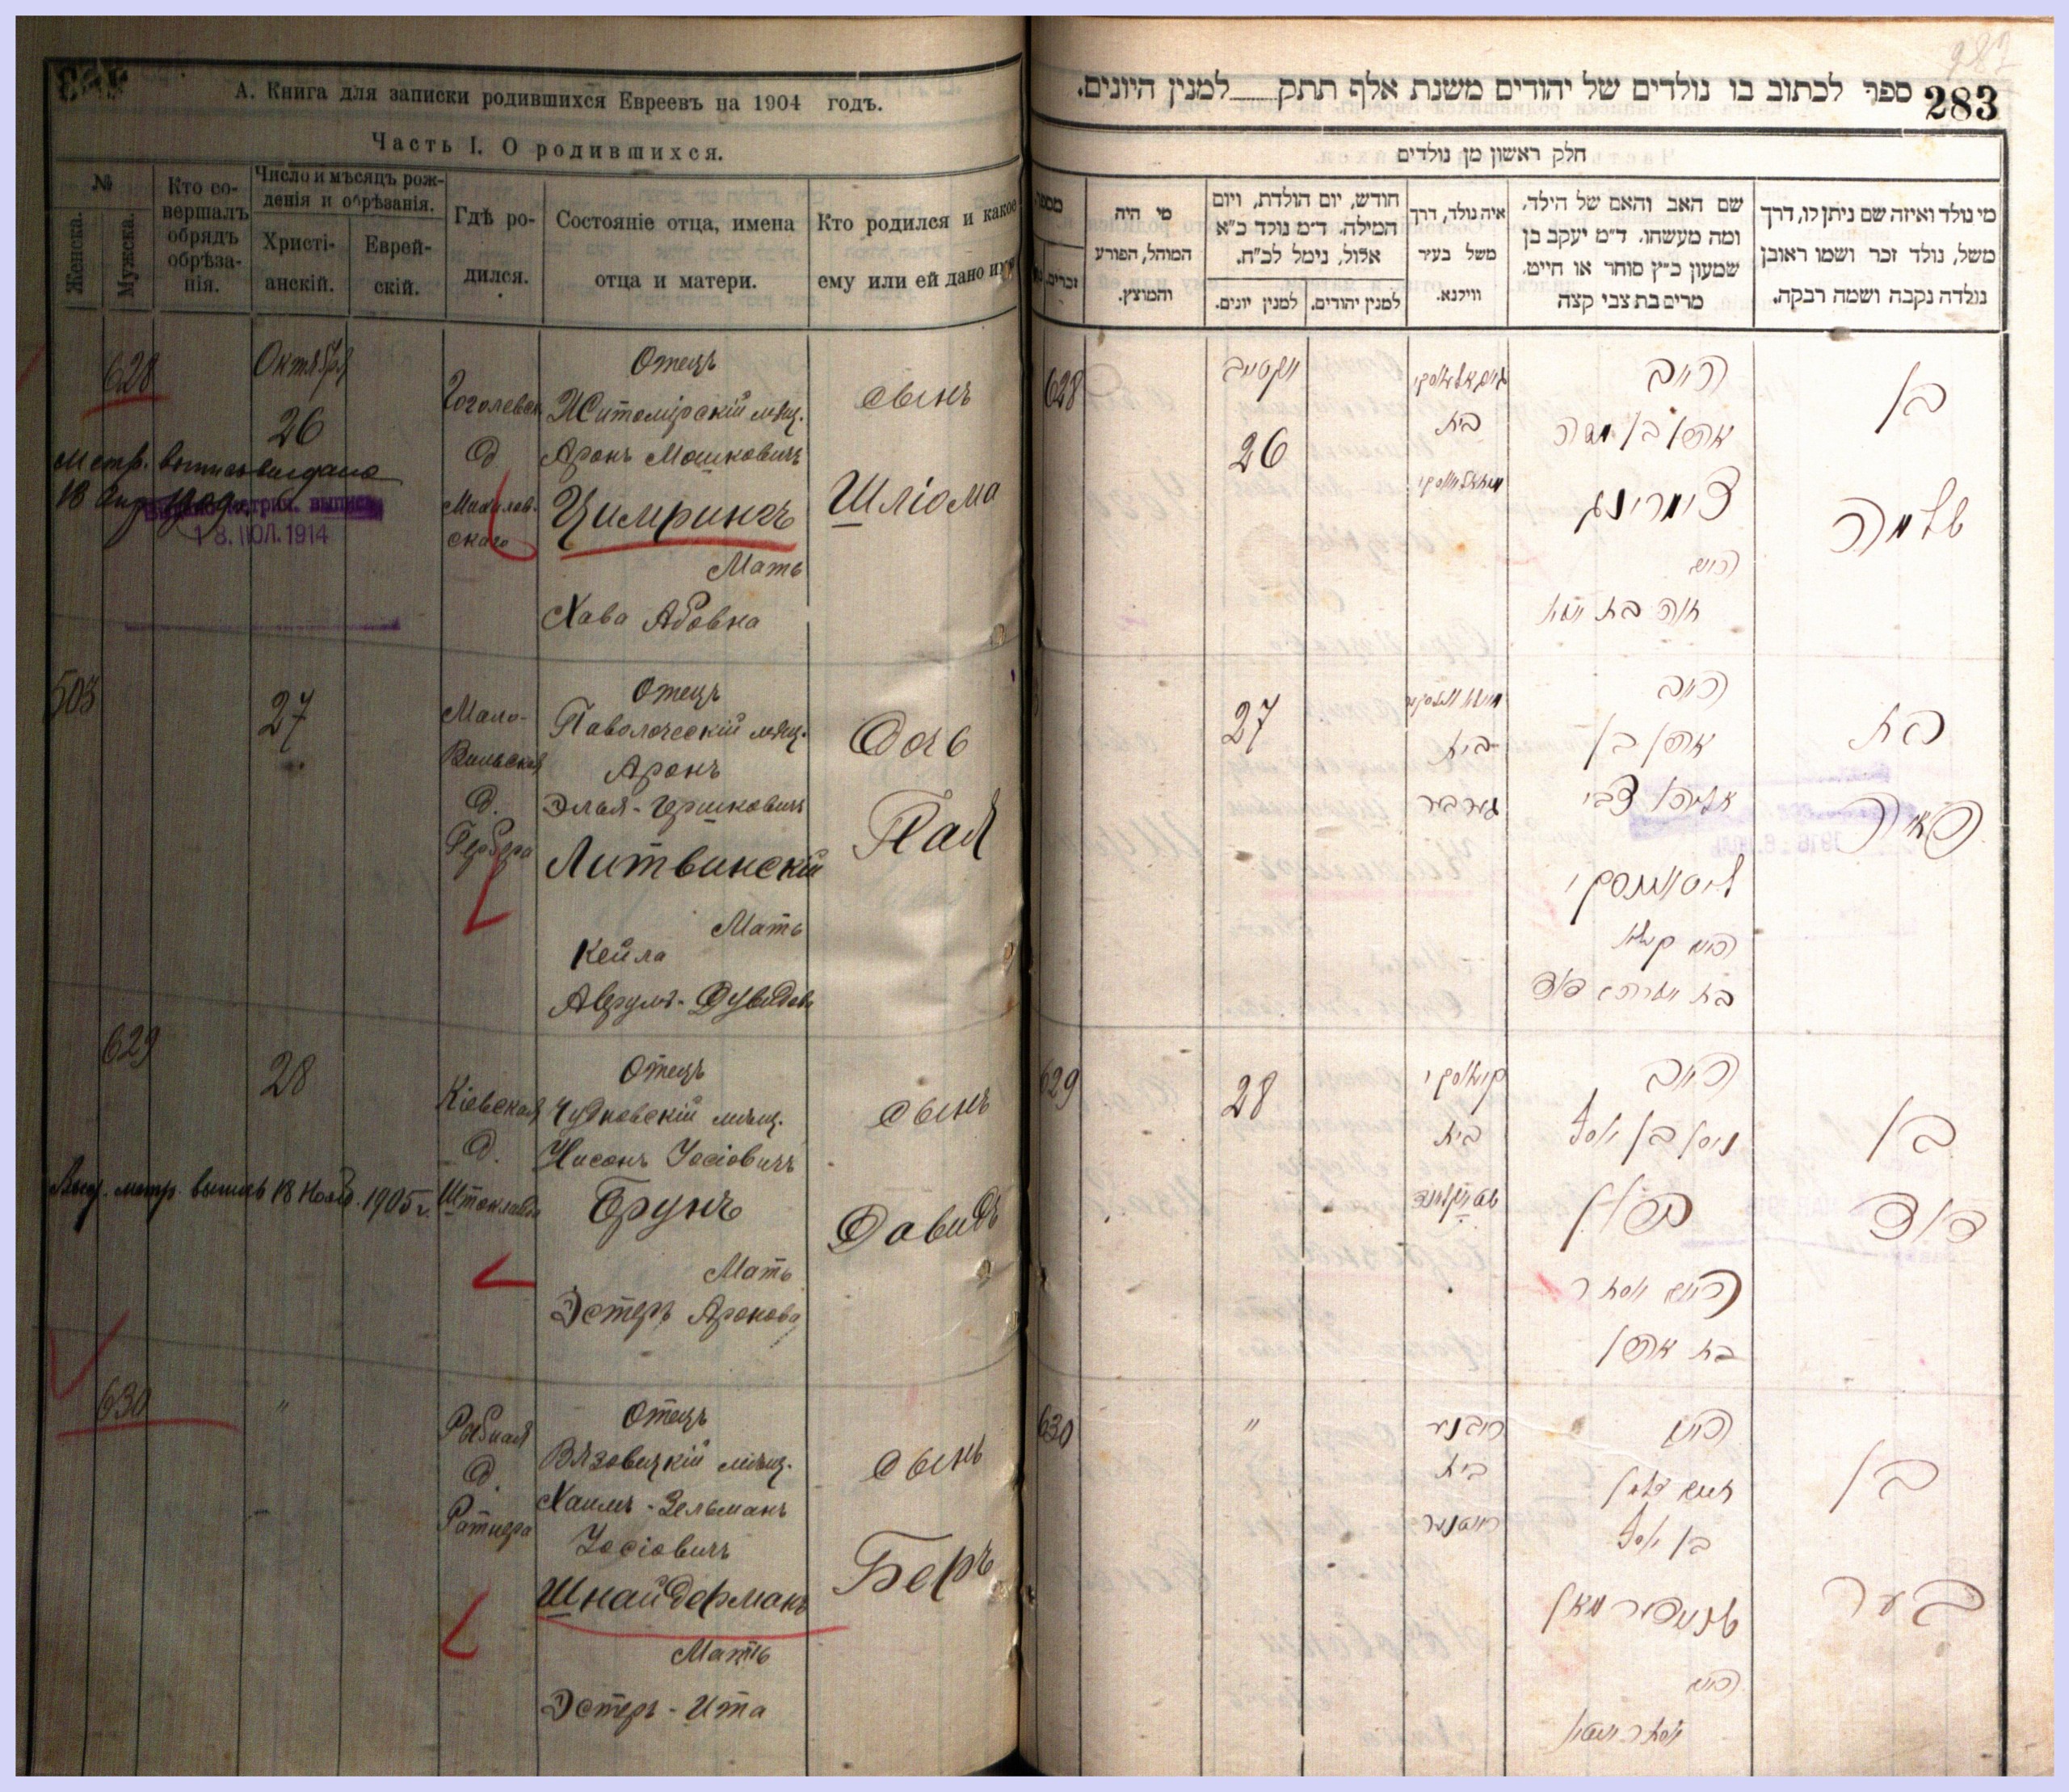 А. Книга для записки родившихся Евреевъ на 1904 годъ.
Часть I. О родившихся.
№
Женска.
Мужска.
Кто со-
вершалъ
обрядъ
обрѣза-
нія.
Число и мѣсяцъ рож-
денія и обрѣзанія.
Христі-
анскій.
Еврей-
скій.
Гдѣ ро-
дился.
Состояніе отца, имена
отца и матери.
Кто родился и какое
ему или ей дано имя
628
Октября
26
Метр. выпись выдана
18 1909
метрич. выпись
18. ІЮЛ. 1914
Гоголевск
д
Михайлов-
скаго
Отецъ
Житомірскій мѣщ.
Аронъ Мошковичъ
Цимрингъ
Мать
Хава Абовна
сынъ
Шліома
503
27
Мало-
Вильская
д.
Гербера
Отецъ
Паволоческій мѣщ.
Аронъ
Элья-Гершковичъ
Литвинскій
Мать
Кейла
Аврумъ-Дувидовн
Дочь
Пая
629
28
Выд. метр. выпись 18 Нояб. 1905 г.
Кіевская
д.
Отецъ
Чудновскій мѣщ.
Нисонъ Іосіовичъ
Брунъ
Мать
Эстеръ Аронова
сынъ
Давидъ
630
"
Рыбная
д.
Ратнера
Отецъ
Вязовецкій мѣщ.
Хаимъ-Зельманъ
Іосіовичъ
Шнайдерманъ
Мать
Эстеръ-Ита
сынъ
Беръ
283
ספר לכתוב בו נולדים של יהודים משנת אלף תתק למנין היונים.
חלק ראשון מן נולדים
מי נולד ואיזה שם ניתן לו, דרך
משל, נולד זכר ושמו ראובן
נולדה נקבה ושמה רבקה.
שם האב והאם של הילד,
ומה מעשהו. ד״מ יעקב בן
שמעון כ״ץ סוחר או חייט.
מרים בת צבי קצה
איה נולד, דרך
משל בעיר
ווילנא.
חודש, יום הולדת, ויום
המילה. ד״מ נולד כ״א
אלול, נימל לכ״ח.
למנין יהודים.
למנין יונים.
מי היה
המוהל, הפורע
והמוצץ.
מספר
זכרים
בן
שלמה
האב
אהרן בן משה
צימרינג
האם
חוה בת אבא
בית
26
628
בת
פאיה
האב
אהרן בן
אליהו צבי
ליטווינסקי
האם קיילא
בת אברהם דוד
בית
גערבער
27
בן
דוד
האב
ניסן בן יוסף
ברון
האם אסתר
בת אהרן
קיאווסקי
בית
28
629
בן
בער
חיים זלמן
בן יוסף
שניידערמאן
האם
ריבנע
בית
ראטנער
"
630